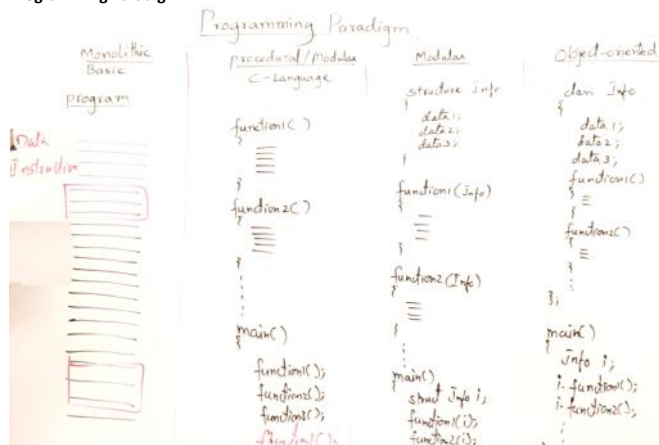 Programming Paradigm
Monolithic
Basic
program
Data
Instruction
procedural/Modular
C-Language
function1( )
{
}
function2( )
{
}
main()
{
function1();
function2();
function3();
function1();
Modular
structure Info
{
data1;
data2;
data3;
}
function1(Info)
{
}
function2(Info)
{
}
main()
{
struct Info i;
function1(i);
function2(i);
Object-oriented
class Info
{
data1;
data2;
data3;
function1()
{
}
function2()
{
}
};
main()
{
Info i;
i.function1();
i.function2();